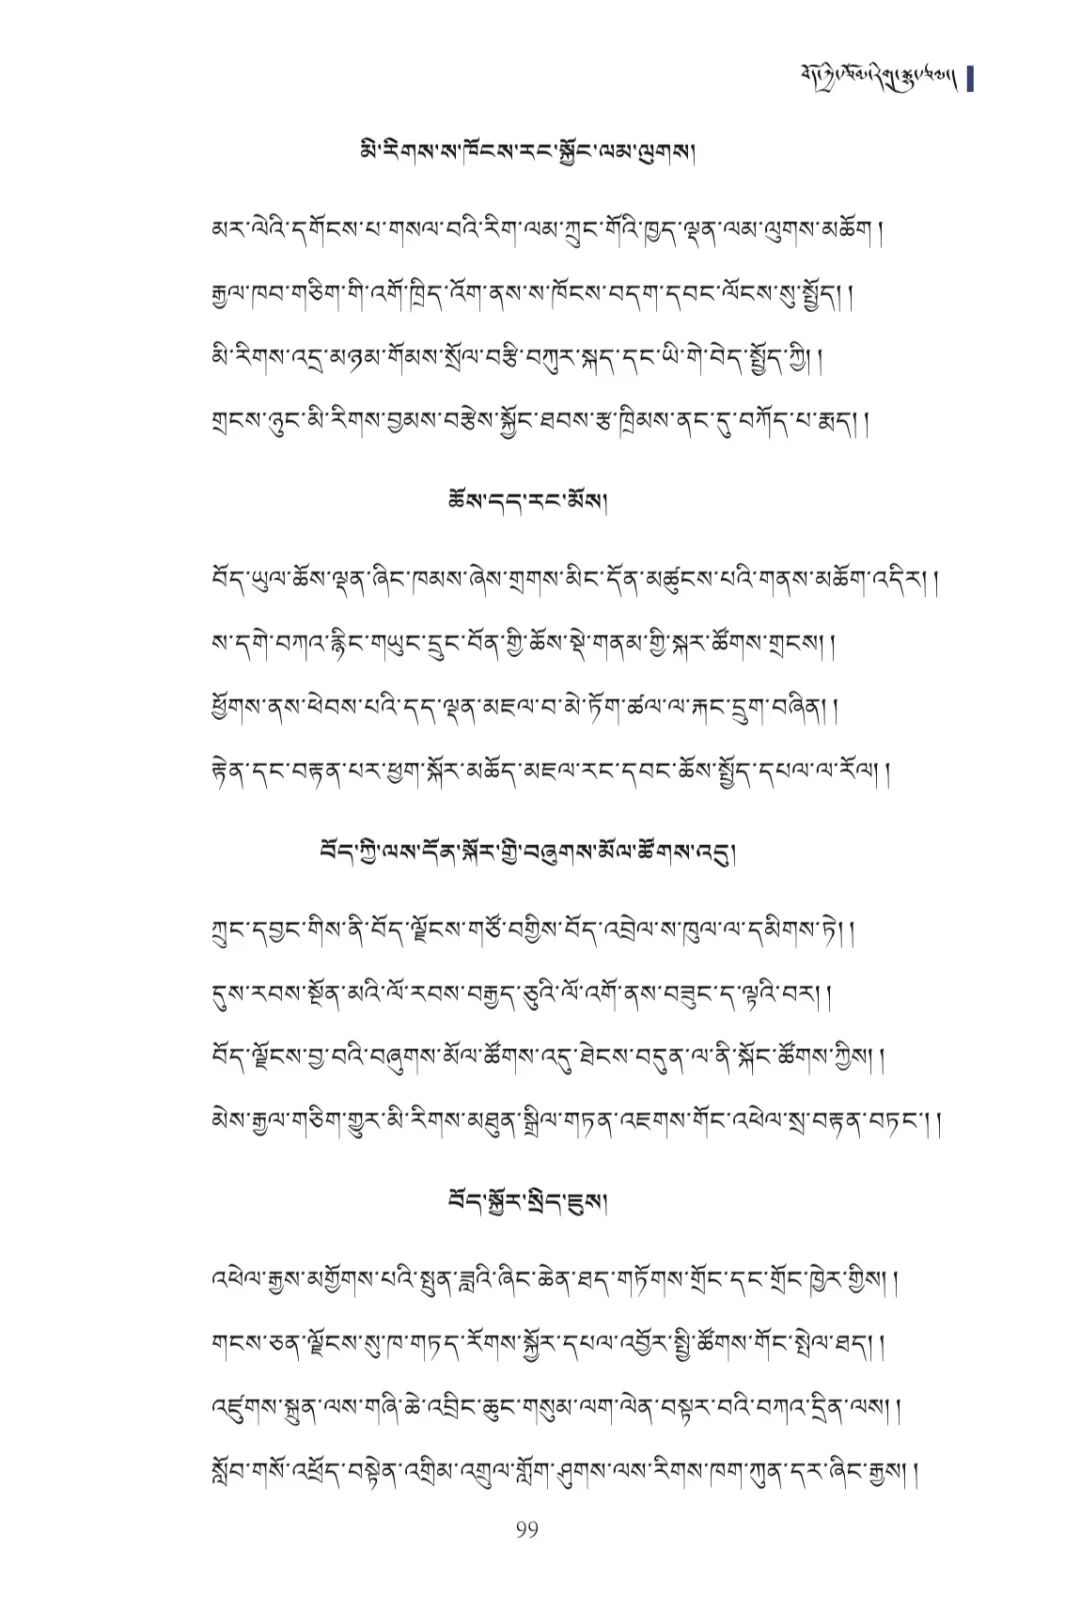 བོད་ཀྱི་པ་ཡོལ་རིགྱ་རྩྭ་པར་ལས།།
མི་རིགས་ས་ཁོངས་རང་སྐྱོང་ལམ་ལུགས།
མར་ལེའི་དགོངས་པ་གསལ་བའི་རིག་ལམ་ཀྲུང་གོའི་ཁྱད་ལྡན་ལམ་ལུགས་མཆོག །
རྒྱལ་ཁབ་གཅིག་གི་འགོ་ཁྲིད་འོག་ནས་ས་ཁོངས་བདག་དབང་ལོངས་སུ་སྤྱོད། །
མི་རིགས་འདྲ་མཉམ་གོམས་སྲོལ་བརྩི་བཀུར་སྐད་དང་ཡི་གེ་བེད་སྤྱོད་ཀྱི། །
གྲངས་ཉུང་མི་རིགས་བྱམས་བརྩེས་སྐྱོང་ཐབས་རྩ་ཁྲིམས་ནང་དུ་བཀོད་པ་རྨད། །
ཆོས་དད་རང་མོས།
བོད་ཡུལ་ཆོས་ལྡན་ཞིང་ཁམས་ཞེས་གྲགས་མིང་དོན་མཚུངས་པའི་གནས་མཆོག་འདིར། །
ས་དགེ་བཀའ་རྙིང་གཡུང་དྲུང་བོན་གྱི་ཆོས་སྡེ་གནམ་གྱི་སྐར་ཚོགས་གྲངས། །
ཕྱོགས་ནས་ཕེབས་པའི་དད་ལྡན་མཇལ་བ་མེ་ཏོག་ཚལ་ལ་རྐང་དྲུག་བཞིན། །
རྟེན་དང་བརྟན་པར་ཕྱག་སྐོར་མཆོད་མཇལ་རང་དབང་ཆོས་སྤྱོད་དཔལ་ལ་རོལ། །
བོད་ཀྱི་ལས་དོན་སྐོར་གྱི་བཞུགས་མོལ་ཚོགས་འདུ།
ཀྲུང་དབྱང་གིས་ནི་བོད་ལྗོངས་གཙོ་བགྱིས་བོད་འབྲེལ་ས་ཁུལ་ལ་དམིགས་ཏེ། །
དུས་རབས་སྔོན་མའི་ལོ་རབས་བརྒྱད་ཅུའི་ལོ་འགོ་ནས་བཟུང་ད་ལྟའི་བར། །
བོད་ལྗོངས་བྱ་བའི་བཞུགས་མོལ་ཚོགས་འདུ་ཐེངས་བདུན་ལ་ནི་སྐོང་ཚོགས་ཀྱིས། །
མེས་རྒྱལ་གཅིག་གྱུར་མི་རིགས་མཐུན་སྒྲིལ་གཏན་འཇགས་གོང་འཕེལ་སྲ་བརྟན་བཏང་། །
བོད་སྐྱོར་སྲིད་ཇུས།
འཕེལ་རྒྱས་མགྱོགས་པའི་སྤུན་ཟླའི་ཞིང་ཆེན་ཐད་གཏོགས་གྲོང་དང་གྲོང་ཁྱེར་གྱིས། །
གངས་ཅན་ལྗོངས་སུ་ཁ་གཏད་རོགས་སྐྱོར་དཔལ་འབྱོར་སྤྱི་ཚོགས་གོང་སྤེལ་ཐད། །
འཛུགས་སྐྲུན་ལས་གཞི་ཆེ་འབྲིང་ཆུང་གསུམ་ལག་ལེན་བསྟར་བའི་བཀའ་དྲིན་ལས། །
སློབ་གསོ་འཕྲོད་བསྟེན་འགྲིམ་འགྲུལ་གློག་ཤུགས་ལས་རིགས་ཁག་ཀུན་དར་ཞིང་རྒྱས། །
99